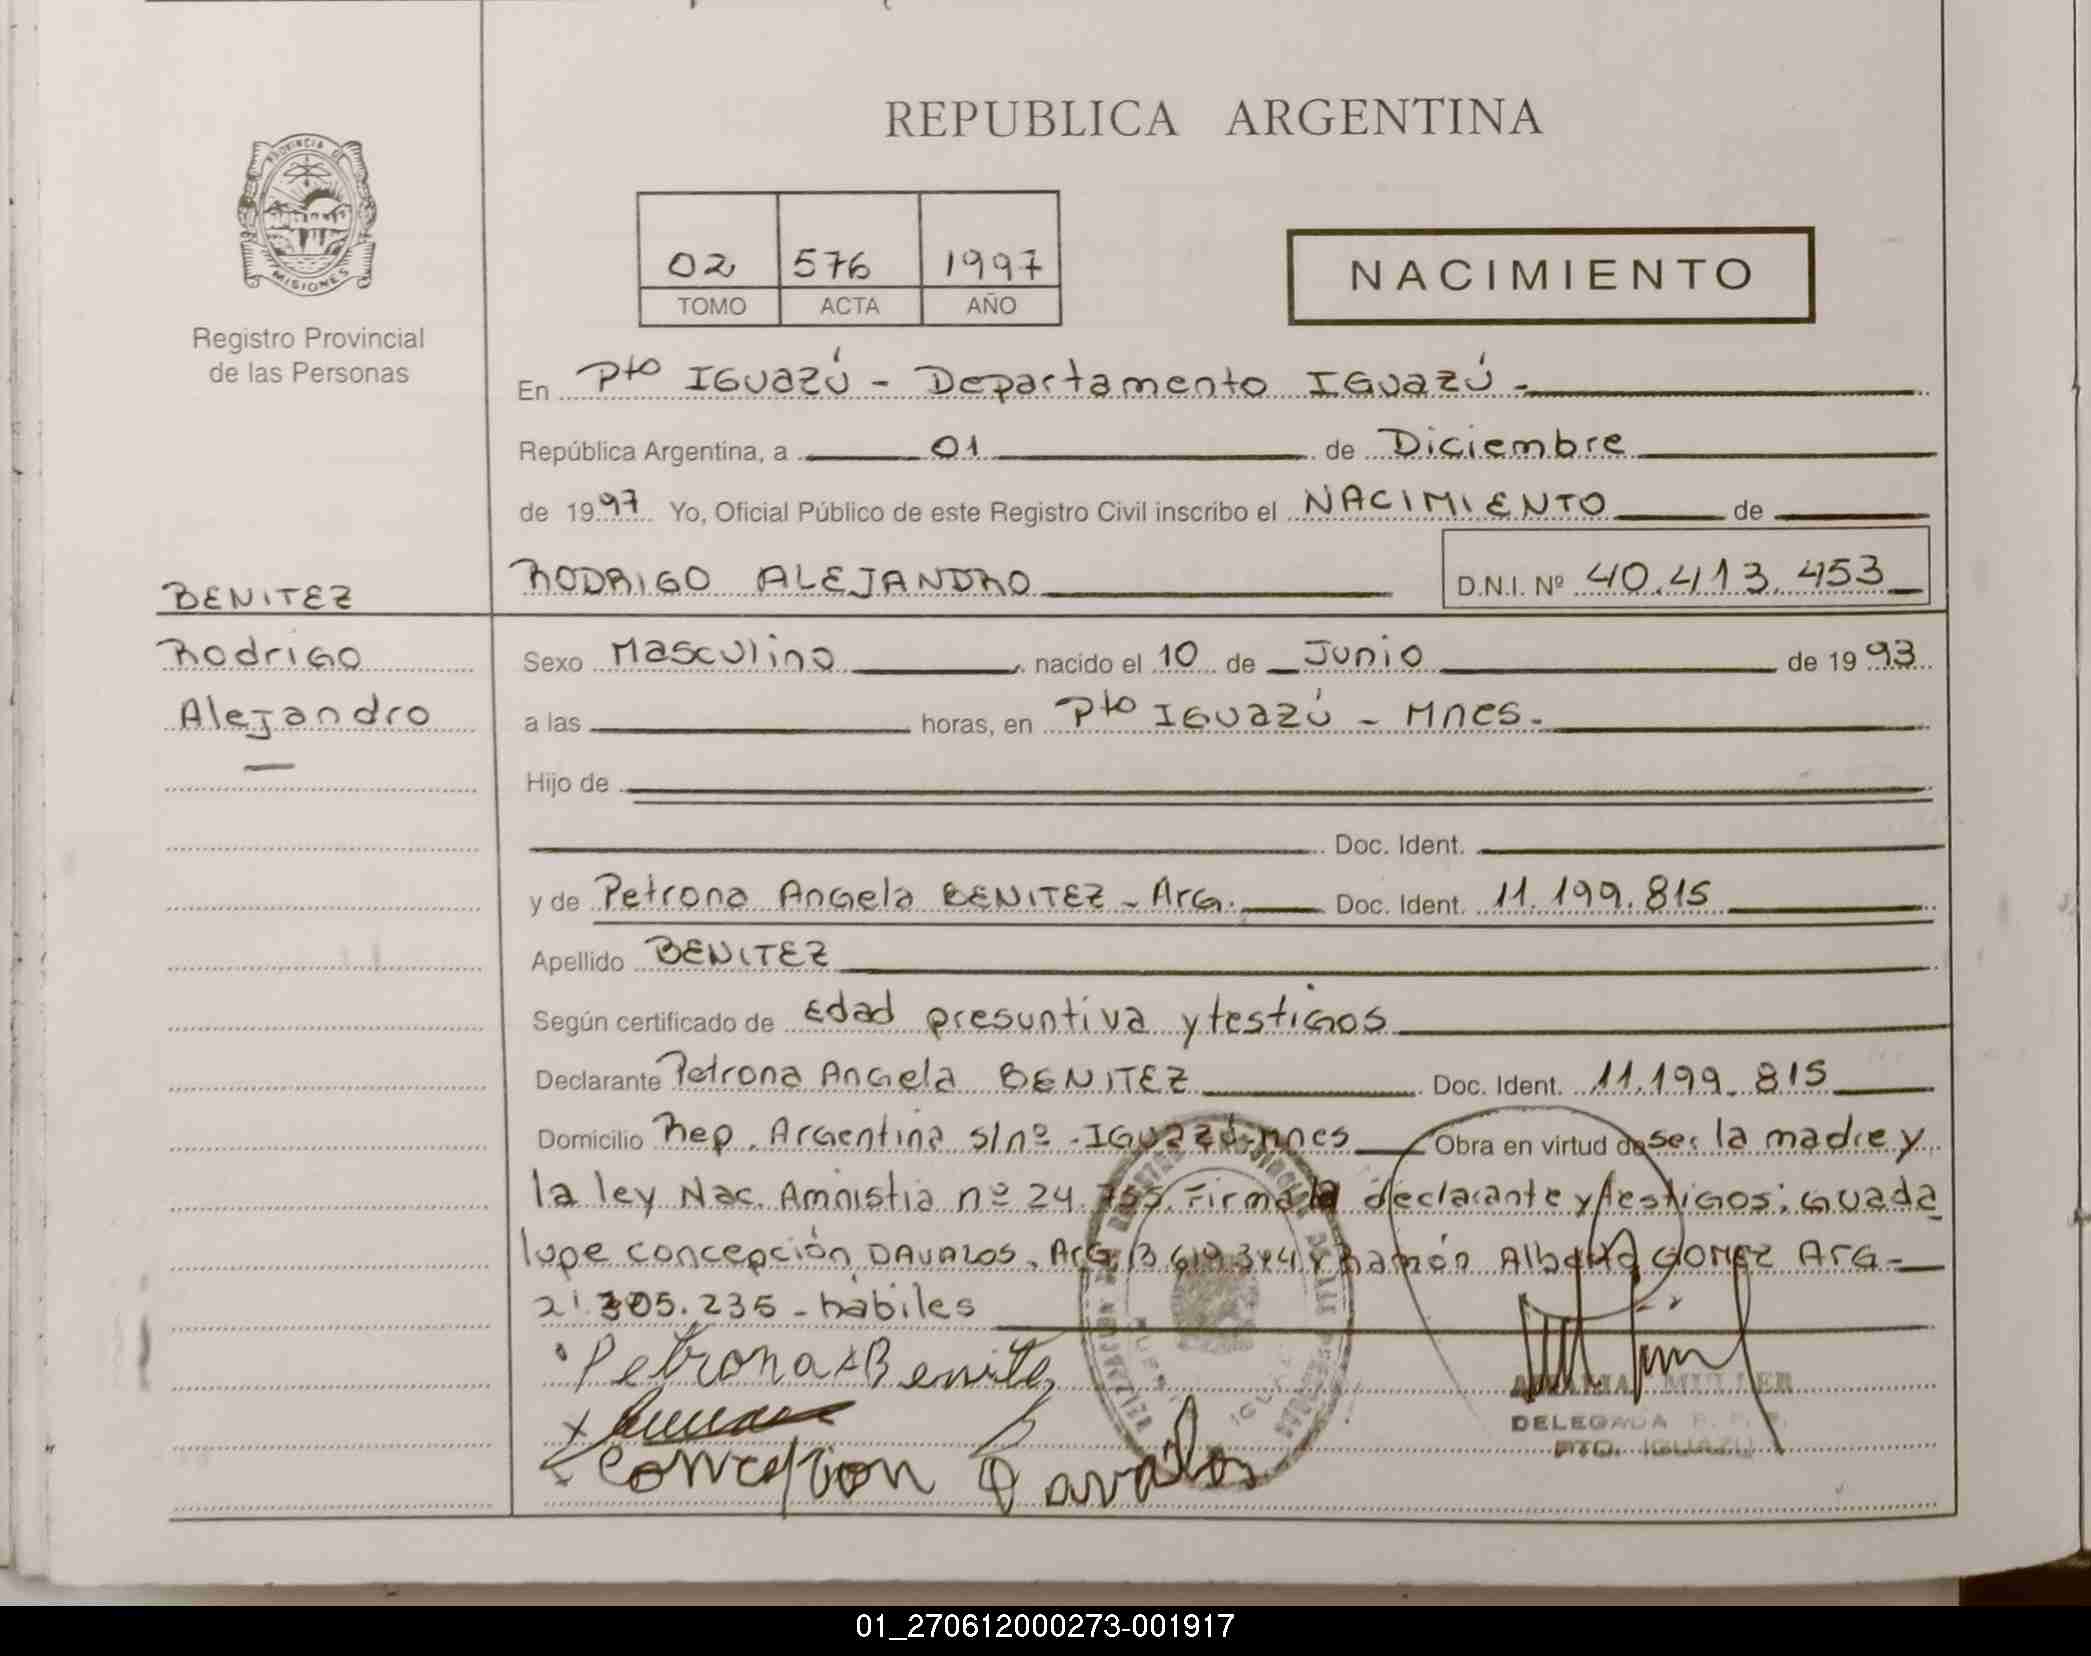 REPUBLICA ARGENTINA
PROVINCIA DE
MISIONES
Registro Provincial
de las Personas
02 576 1997
TOMO ACTA AÑO
NACIMIENTO
En Pto IGUAZÚ - Departamento IGUAZÚ -
República Argentina, a 01 de Diciembre
de 1997 Yo, Oficial Público de este Registro Civil inscribo el NACIMIENTO de
RODRIGO ALEJANDRO D.N.I. Nº 40.413.453
BENITEZ
Rodrigo
Alejandro
Sexo Masculino nacido el 10 de Junio de 1993
a las horas, en Pto IGUAZÚ - Mnes.
Hijo de
Doc. Ident.
y de Petrona Angela BENITEZ - Arg. Doc. Ident. 11.199.815
Apellido BENITEZ
Según certificado de Edad presuntiva y testigos
Declarante Petrona Angela BENITEZ Doc. Ident. 11.199.815
Domicilio Rep. Argentina s/nº - IGUAZÚ - Mnes Obra en virtud de ser la madre y
la ley Nac. Amnistia nº 24.755. Firma la declarante y testigos: Guada
lupe concepción DAVALOS, Arg. y Ramón Alberto GOMEZ ARG -
21.305.235 - hábiles
Petrona A Benitez
Concepcion Davalos
MULLER
DELEGADA
PTO. IGUAZU
01_270612000273-001917